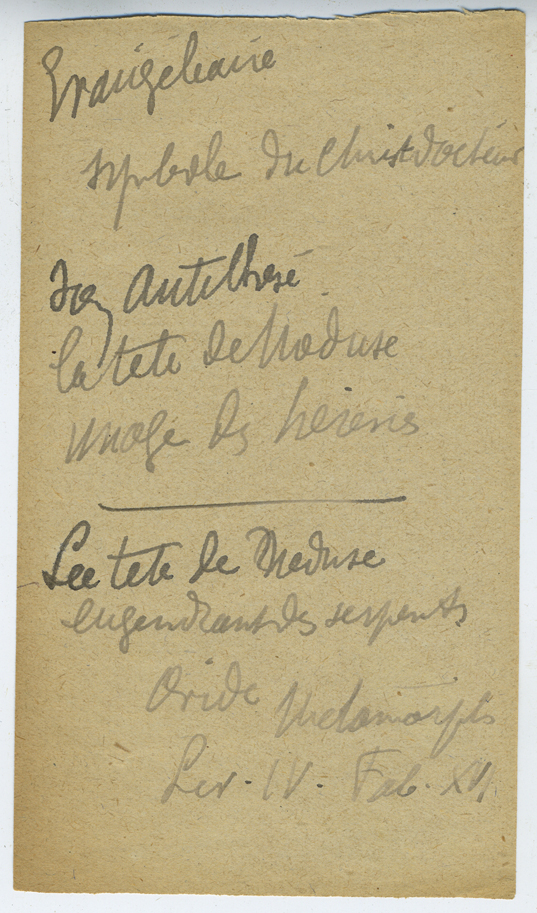 Evangéliaire
symbole du Christ docteur
Son Antithèse
la tete de Meduse
image des hérésies
La tete de Meduse
engendrant des serpents
Ovide Metamorphs
Liv. IV. Fab. XVI